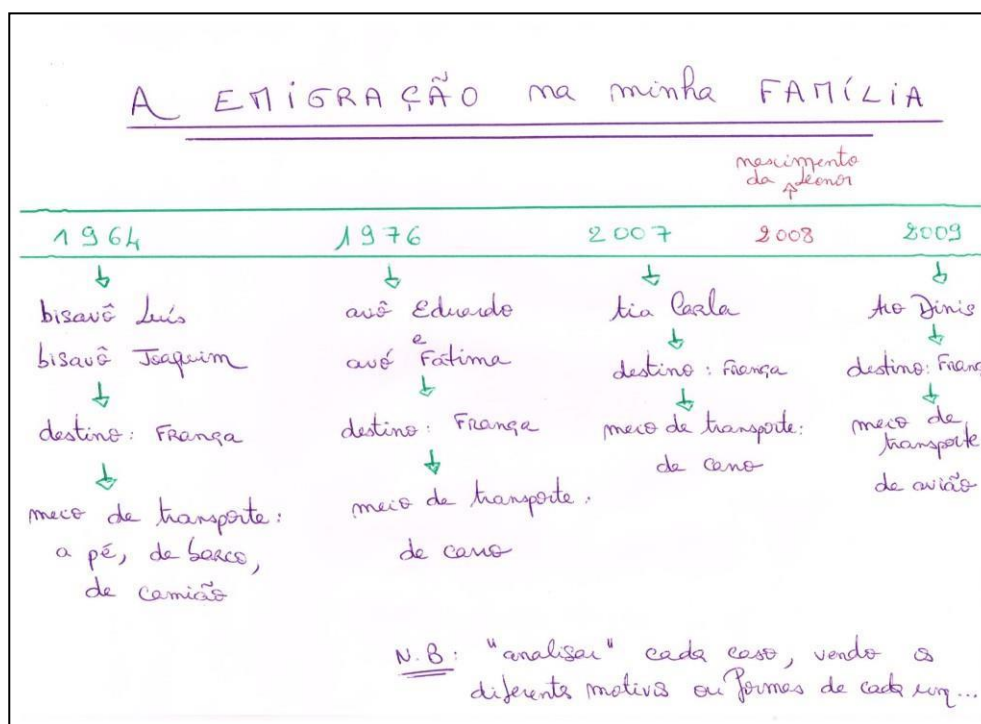 A EMIGRAÇÃO na minha FAMÍLIA
nascimento
da Leonor
1964 1976 2007 2008 2009
bisavô Luís
bisavô Joaquim
destino: França
meio de transporte:
a pé, de barco,
de camião
avô Eduardo
e
avó Fátima
destino: França
meio de transporte:
de carro
tia Carla
destino: França
meio de transporte:
de carro
tio Dinis
destino: Franç
meio de
transporte
de avião
N.B: "analisar" cada caso, vendo os
diferentes motivos ou formas de cada um...